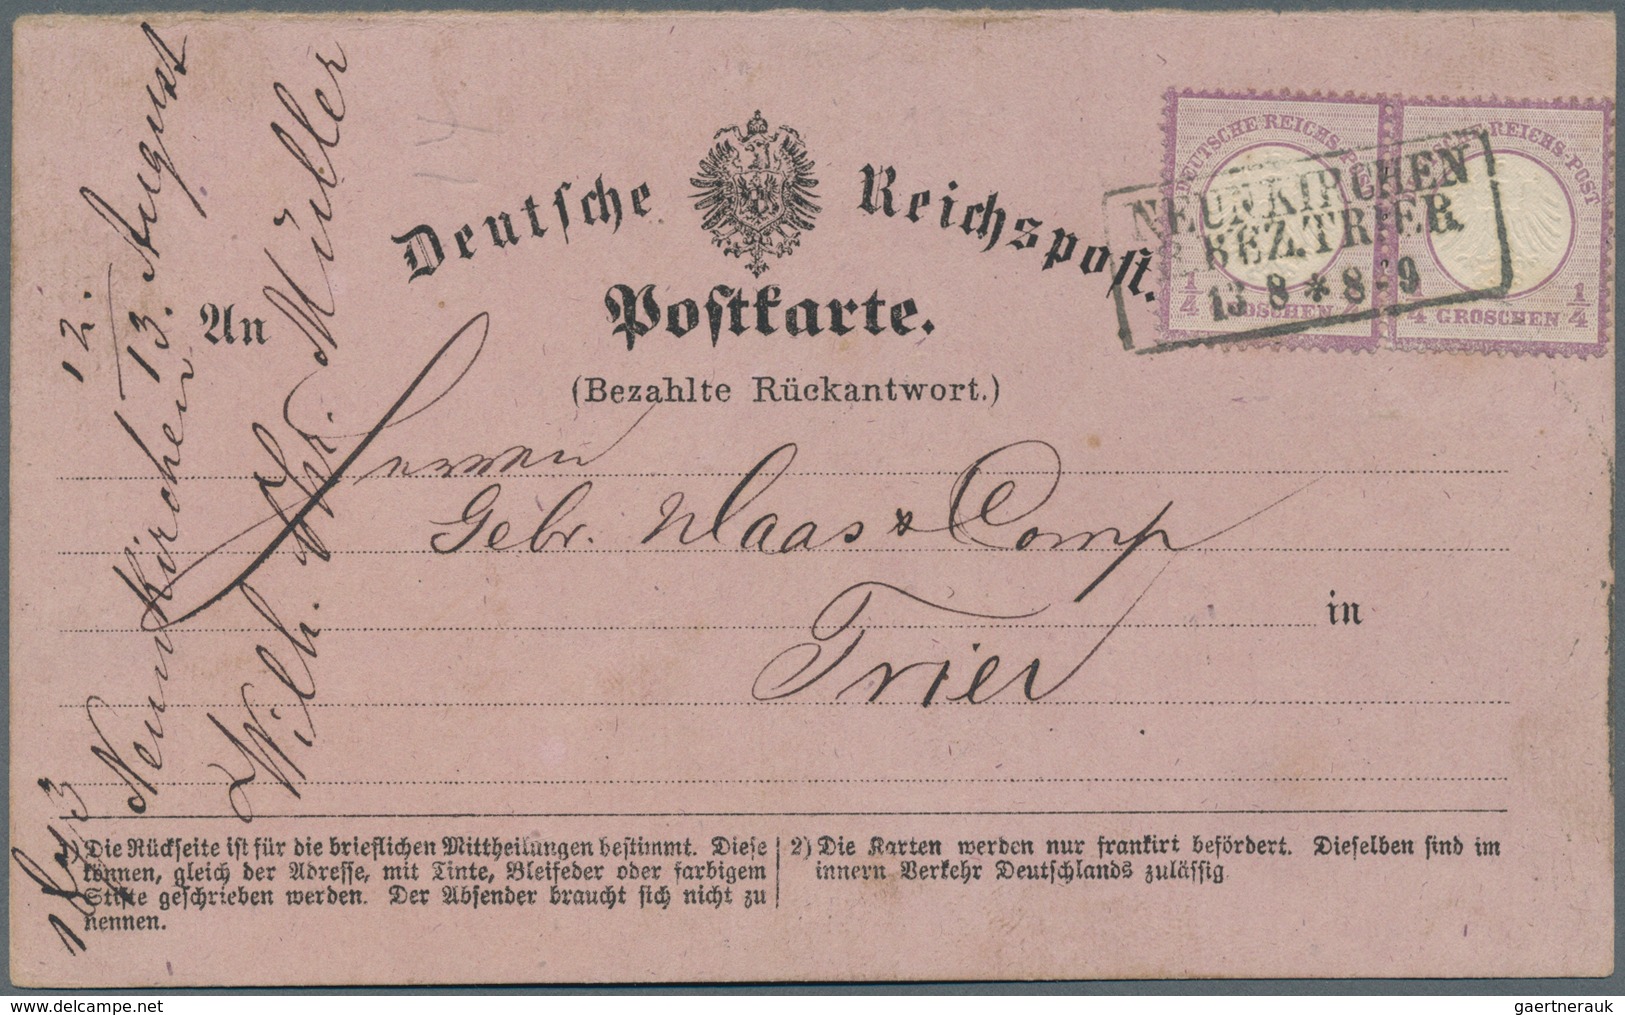 Deutsche Reichspost.
Postkarte.
(Bezahlte Rückantwort.)
An
Herren
Gebr. Haas & Comp
in
Trier
DEUTSCHE REICHS-POST
1/4 GROSCHEN 1/4
REICHS-POST
1/4 GROSCHEN 1/4
NEUNKIRCHEN
BEZ.TRIER.
13 8 * 8-9
1873
12.
Neunkirchen 13. August
Wilh. Müller
1) Die Rückseite ist für die brieflichen Mittheilungen bestimmt. Diese
können, gleich der Adresse, mit Tinte, Bleifeder oder farbigem
Stifte geschrieben werden. Der Absender braucht sich nicht zu
nennen.
2) Die Karten werden nur frankirt befördert. Dieselben sind im
innern Verkehr Deutschlands zulässig
gaertnerauk